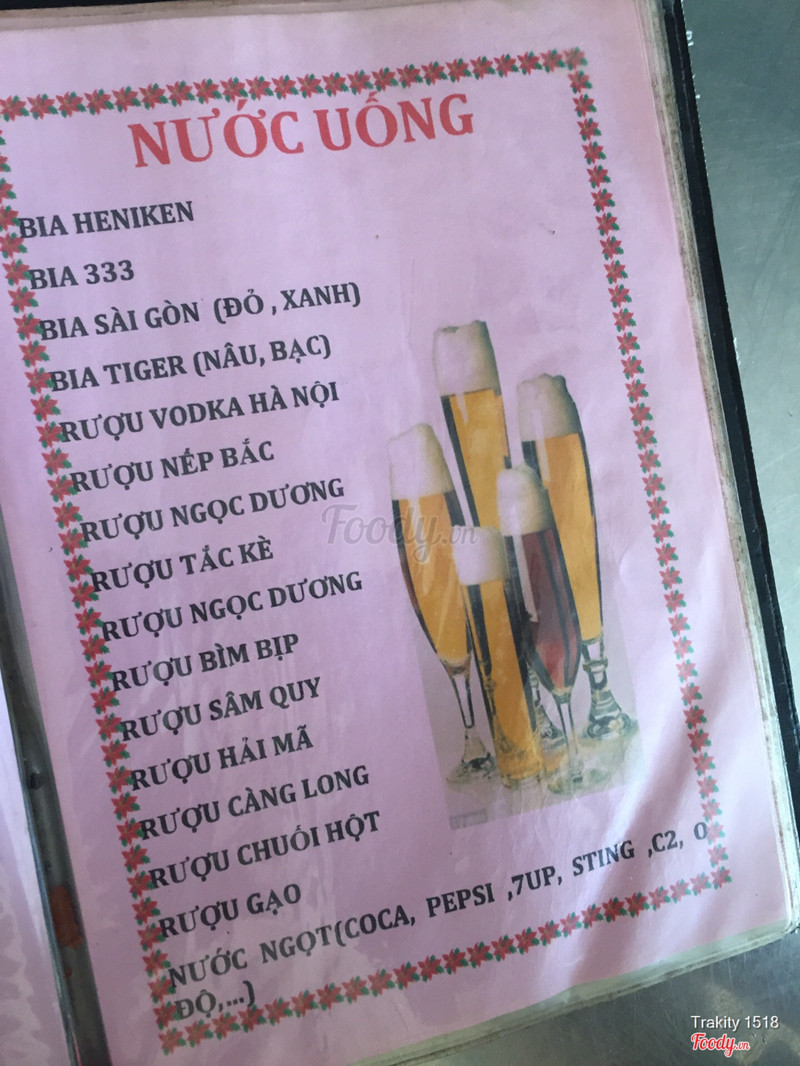 NƯỚC UỐNG
BIA HENIKEN
BIA 333
BIA SÀI GÒN (ĐỎ , XANH)
BIA TIGER (NÂU, BẠC)
RƯỢU VODKA HÀ NỘI
RƯỢU NẾP BẮC
RƯỢU NGỌC DƯƠNG
RƯỢU TẮC KÈ
RƯỢU NGỌC DƯƠNG
RƯỢU BÌM BỊP
RƯỢU SÂM QUY
RƯỢU HẢI MÃ
RƯỢU CÀNG LONG
RƯỢU CHUỐI HỘT
RƯỢU GẠO
NƯỚC NGỌT(COCA, PEPSI ,7UP, STING ,C2, O
ĐỘ,...)
Foody.vn
Trakity 1518
Foody.vn